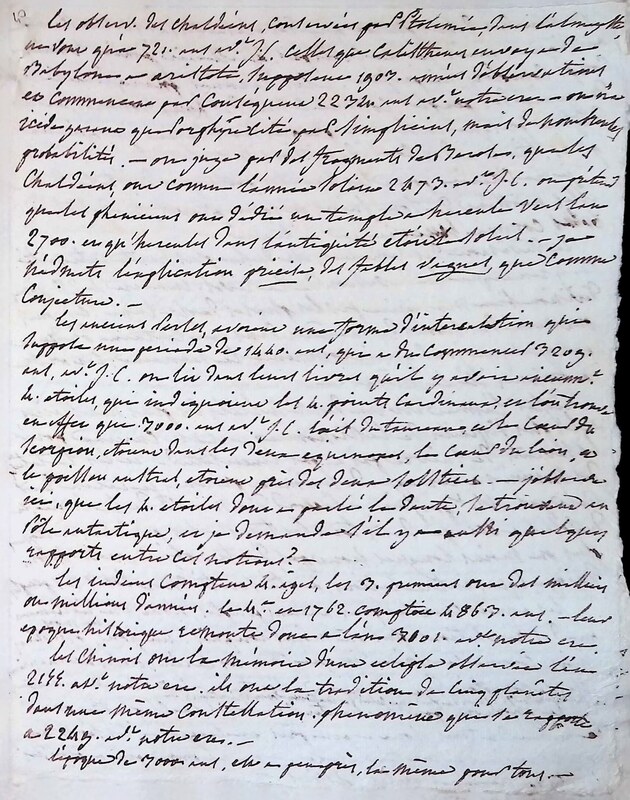 les observ. des chaldéens, conservées par Ptolemée, dans l'almageste
ne vont qu'à 721. ans av.t J.C. celles que Callisthene envoya de
Babylone a aristote, supposent 1903. années d'observations
et commencent par conséquent 2234 ans av.t notre ere — on n'a
icide garant que Porphyre cité par Simplicius, mais de nombreuses
probabilités. — on juge par des fragments de Berose, que les
Chaldéens ont connu l'année solaire 2473. av.t J.C. on prétend
que les phéniciens ont dédié un temple a hercule vers l'an
2700. et qu'hercules dans l'antiquité etoit le soleil. — je
n'admets l'explication précise, des fables vagues, que comme
conjecture. —
les anciens Perses, avoient une forme d'intercalation qui
suppose une periode de 1440. ans, qui a du commencer 3209.
ans, av.t J.C. on lit dans leurs livres qu'il y avoit anciennem.t
4. etoiles, qui indiquoient les 4. points cardinaux, et l'on trouve
en effet que 3000. ans av.t J.C. l'œil du taureau, et le Cœur du
scorpion, etoient dans les deux equinoxes, le Cœur du lion, et
le poisson austral, etoient près des deux solstices. — j'observe
ici, que les 4. etoiles dont a parlé la Dante, se trouvent au
Pôle antarctique, et je demande s'il y a aussi quelques
rapports entre ces notions? —
les indiens comptent 4. ages, les 3. premiers ont des milliers
ou millions d'années. le 4.e en 1762. comptoit 4863. ans. — leur
epoque historique remonte donc a l'an 3101. av.t notre ere.
les Chinois ont la mémoire d'une eclipse observée l'an
2155. av.t notre ere. ils ont la tradition de cinq planètes
dans une même constellation. phenomène qui se rapporte
a 2449. av.t notre ere. —
l'époque de 3000 ans, est a peu près, la même pour tous. —